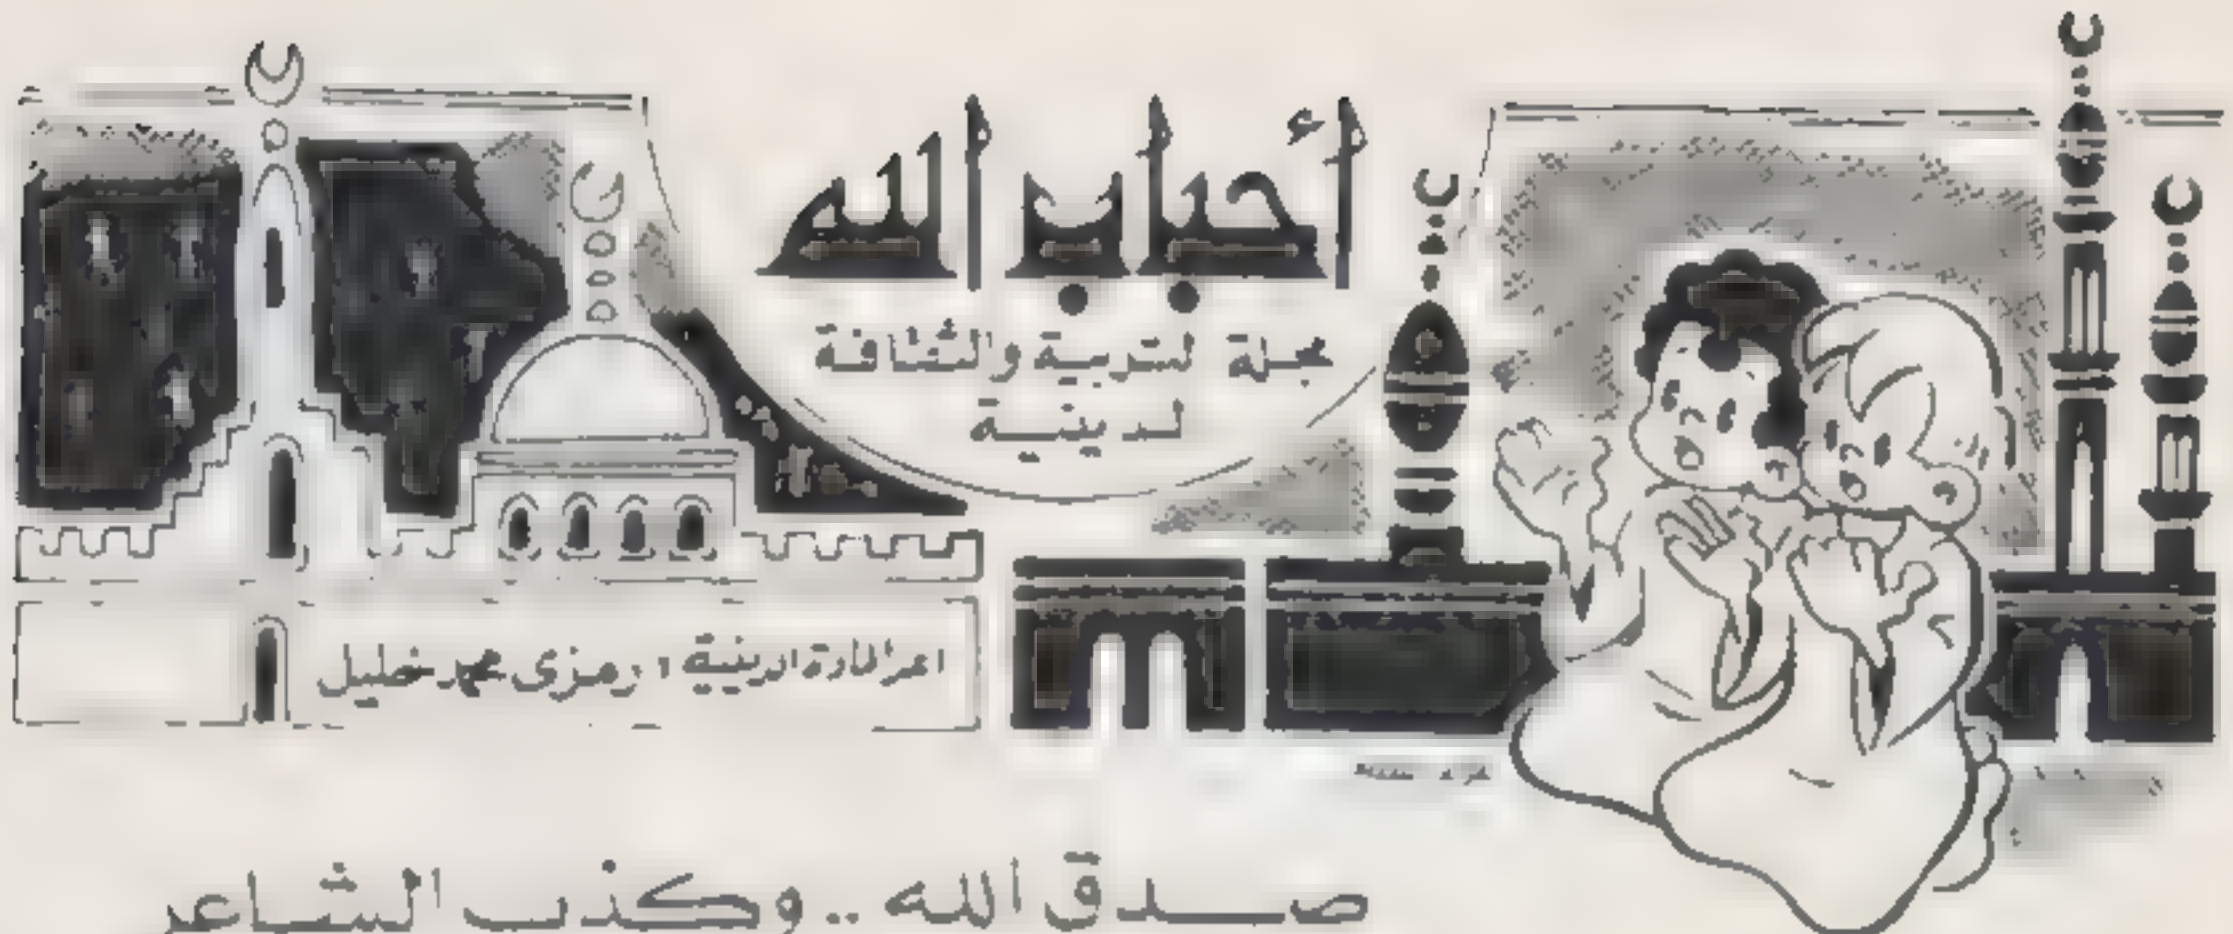 أحباب الله
مجلة للتربية والثقافة
الدينية
اعد المادة الدينية : رمزى محمد خليل
صدق الله .. وكذب الشاعر